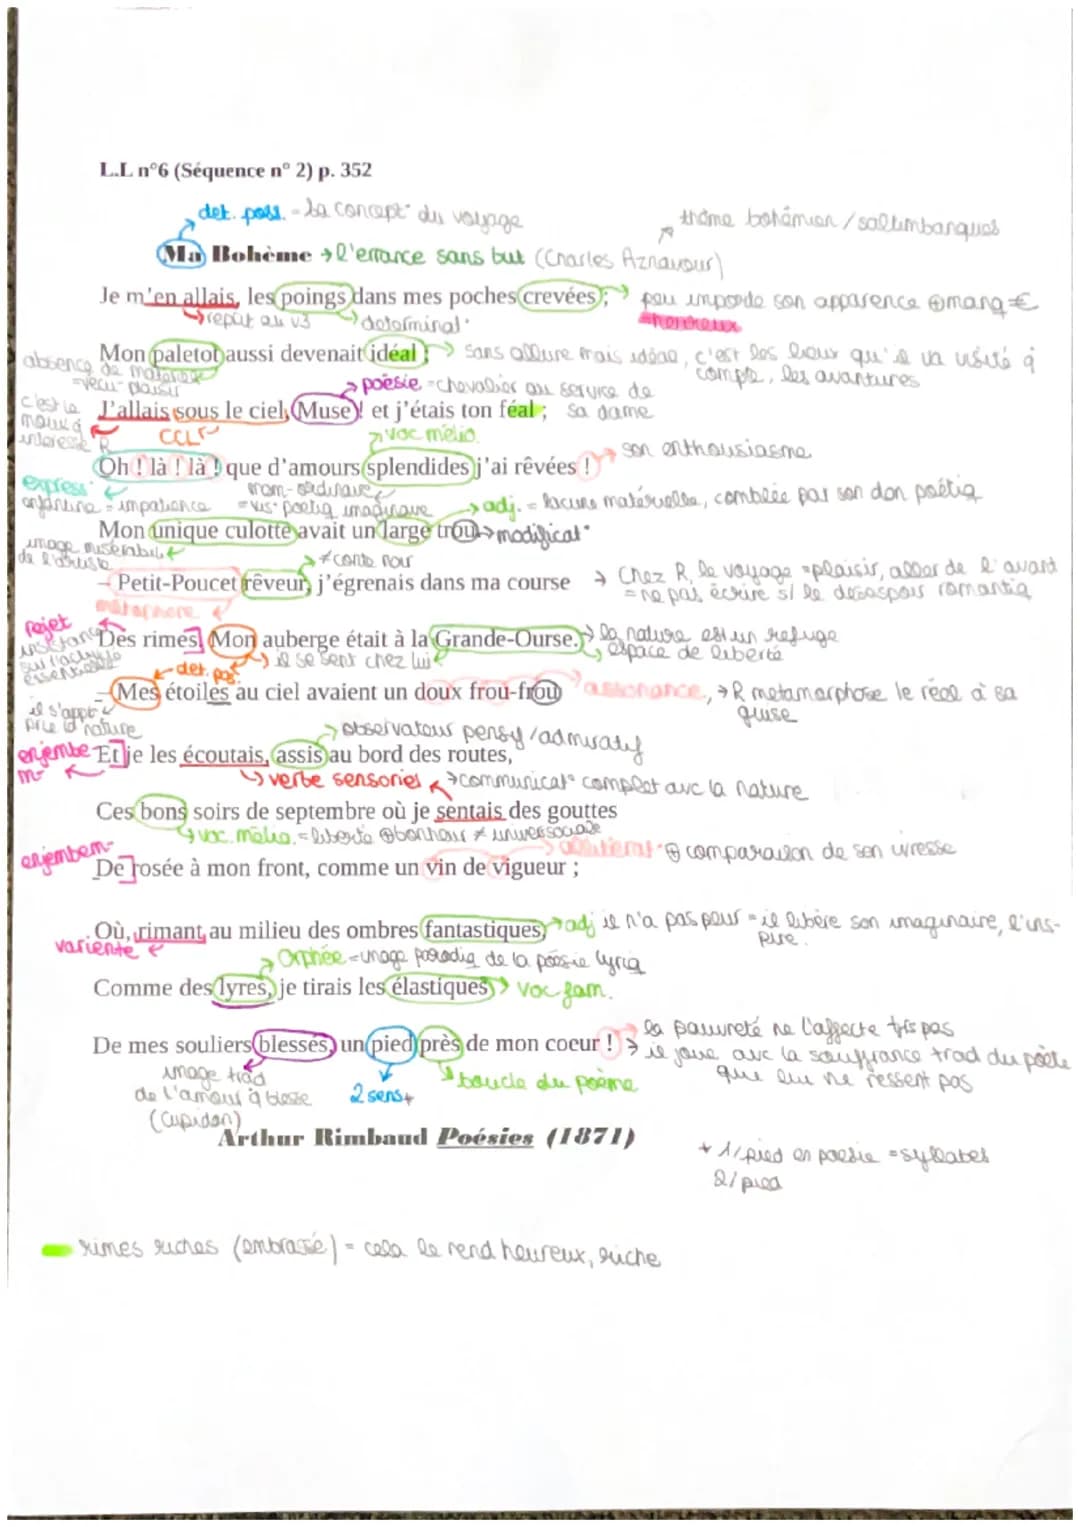 L.L n°6 (Séquence n° 2) p. 352
det. poss. = la concept° du voyage
thème bohémien / saltimbanques
Ma Bohème → l'errance sans but (Charles Aznavour)
Je m'en allais, les poings dans mes poches crevées ; → peu importe son apparence ⊕ manq €
→ répét au v3
→ déterminat°
= heureux
Mon paletot aussi devenait idéal ; → sans allure mais idéal, c'est les lieux qu'il va visité q
compte, les avantures
absence de matériel
= vécu plaisir
→ poésie = chevalier au service de
J'allais sous le ciel, Muse ! et j'étais ton féal ; sa dame
c'est le
mouv q
intéresse R
CCL
→ voc mélio.
Oh ! là ! là ! que d'amours splendides j'ai rêvées ! → son enthousiasme
express°
enfantine = impatience
nom-ordinaire
= vis° poétiq imaginaire
→ adj. = lacune matérielle, comblée par son don poétiq
Mon unique culotte avait un large trou. → modificat°
image misérabil
de l'artiste
→ ≠ conte noir
– Petit-Poucet rêveur, j'égrenais dans ma course → Chez R, le voyage = plaisir, aller de l'avant
= ne pas écrire s/ le desespoir romantiq
métaphore
rejet
insistance
sur l'activité
essentielle
Des rimes. Mon auberge était à la Grande-Ourse. → la nature est un refuge
→ espace de liberté
→ il se sent chez lui
det. pos
– Mes étoiles au ciel avaient un doux frou-frou → assonance, → R métamorphose le réel à sa
guise
il s'appr
prie la nature
→ observateur pensif / admiratif
enjembe
m-
Et je les écoutais, assis au bord des routes,
→ verbe sensoriel → communicat° complet avc la nature
Ces bons soirs de septembre où je sentais des gouttes
→ voc. mélio. = liberté ⊕ bonheur ≠
enjembem-
→ allitérat° ⊕ comparaison de son ivresse
De rosée à mon front, comme un vin de vigueur ;
Où, rimant au milieu des ombres fantastiques, → adj il n'a pas peur = il libère son imaginaire, l'ins-
pire.
variente
→ Orphée = image parodiq de la poésie lyriq
Comme des lyres, je tirais les élastiques → voc fam.
De mes souliers blessés, un pied près de mon coeur ! → la pauvreté ne l'affecte trs pas
→ il joue avc la souffrance trad du poète
que lui ne ressent pas
image trad
de l'amour q blesse
(Cupidon)
2 sens*
→ boucle du poème
Arthur Rimbaud Poésies (1871)
* 1/ pied en poésie = syllabes
2/ pied
rimes riches (embrassé) = cela le rend heureux, riche